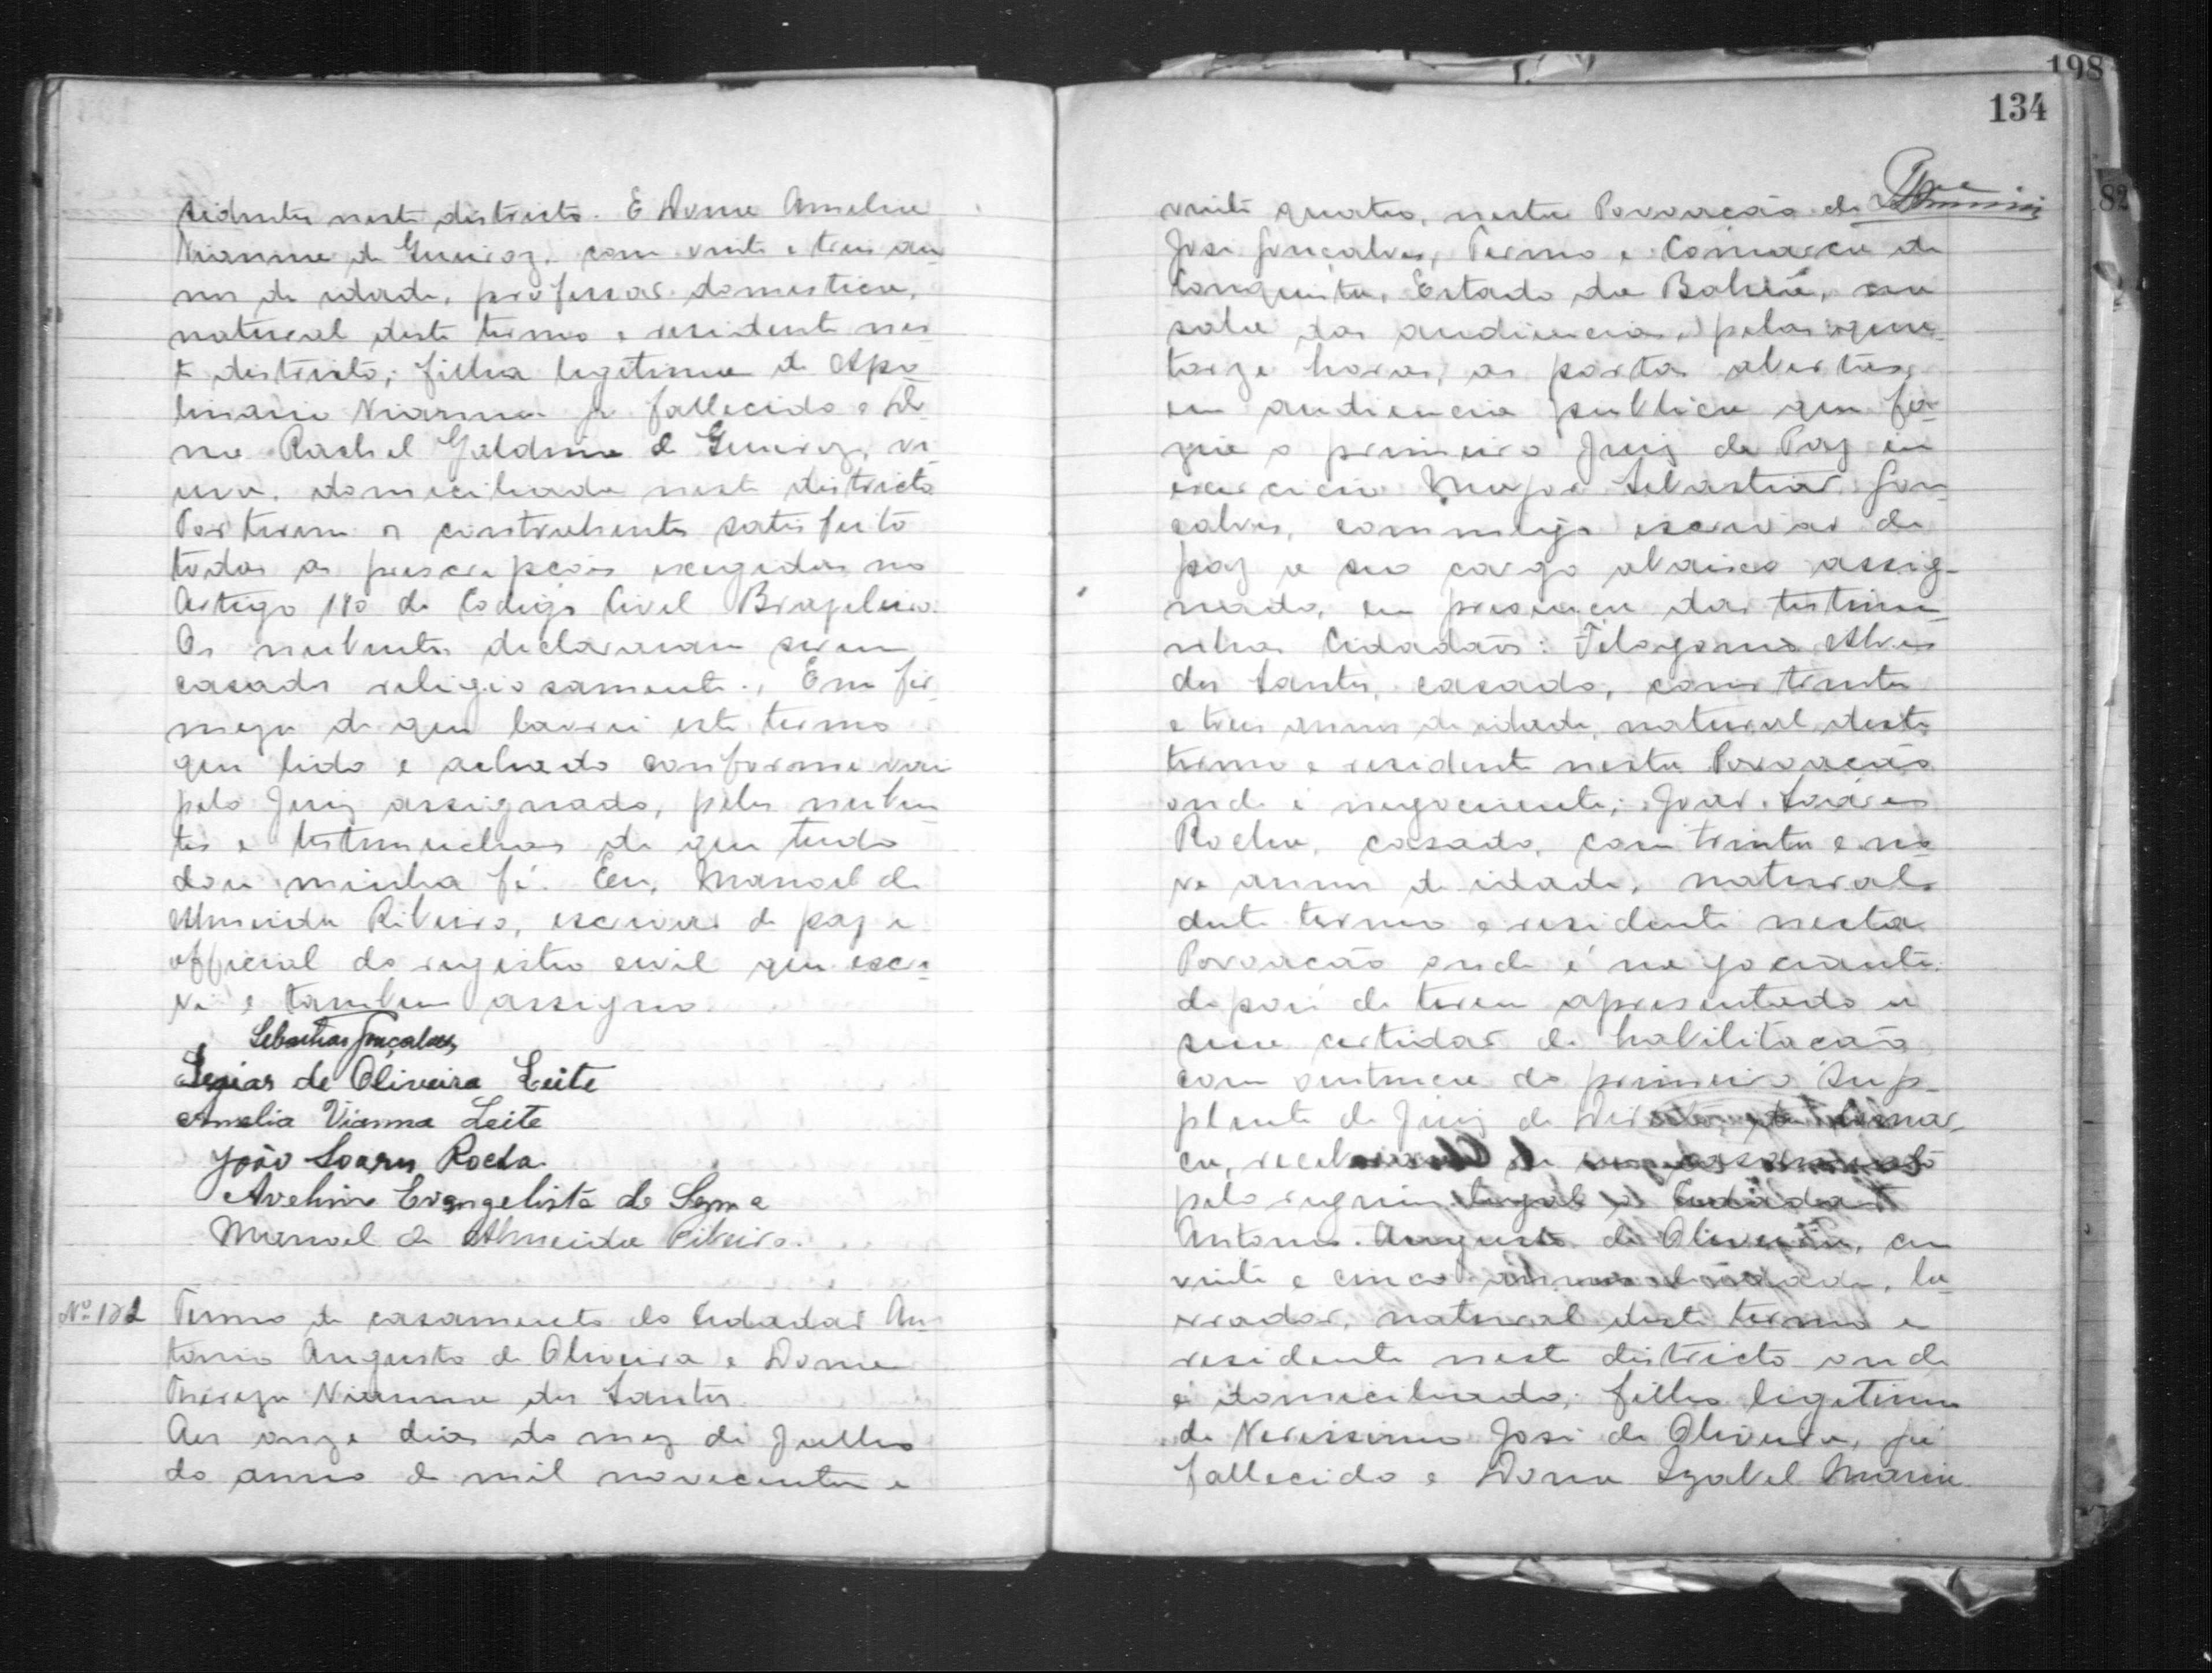 sidentes neste districto. E Dona Amelia
Vianna de Queiroz, com vinte e tres an
nos de idade, professar domestica,
natural deste termo e residente nes
te districto; filha legitima de Apo
linario Vianna já fallecido e Do
na Rachel Galdina de Queiroz, vi
uva, domiciliada neste districto
Por terem os contrahentes satisfeito
todas as prescripções exegidas no
Artigo 180 do Codigo Civel Brazileiro.
Os nubentes declararam serem
casados religiosamente., Em fir
meza do que lavrei este termo
que lido e achado conforme vai
pelo Juiz assignado, pelos nuben
tes e testemunhas do que tudo
dou minha fé. Eeu, Manoel de
Almeida Ribeiro, escrivão de paz e
official do registro civil que escre
vi e tambem assigno.
Sebastião Gonçalves
de Oliveira Leite
Amelia Vianna Leite
João Soares Rocha
Avelino Evangelista de Sousa
Manoel de Almeida Ribeiro.
Nº 182 Termo de casamento do Cidadão An
tonio Augusto de Oliveira e Dona
Thereza Vianna dos Santos.
Aos onze dias do mez de Julho
do anno de mil novecentos e
198
134
82
vinte quatro, nesta Povoação de
José Gonçalves, Termo e Comarca de
Conquista, Estado da Bahia, em
sala das audiencias, pelas qua
torze horas, as portas abertas,
em audiencia publica que fa
zia o primeiro Juiz de Paz em
exercicio Major Sebastião Gon
çalves, commigo escrivão de
paz a seu cargo abaixo assig-
nado, em presença das testemu
nhas Cidadãos: Alves
dos Santos, casado, com trinta
e tres annos de idade, natural deste
termo e residente nesta Povoação
onde é negociante; João Soares
Rocha, casado, com trinta e no
ve annos de idade, natural
deste termo e residente nesta
Povoação onde é negociante.
depois de terem apresentado a
sua certidão de habilitação
com sentença do primeiro Sup-
plente de Juiz de Direito da Comar
ca, receberam se em casamento
pelo regimen legal o Cidadão
Antonio Augusto de Oliveira, com
vinte e cinco annos de idade, la
vrador, natural deste termo e
residente neste districto onde
é domiciliado; filho legitimo
de Verissimo José de Oliveira, já
fallecido e Dona Izabel Maria